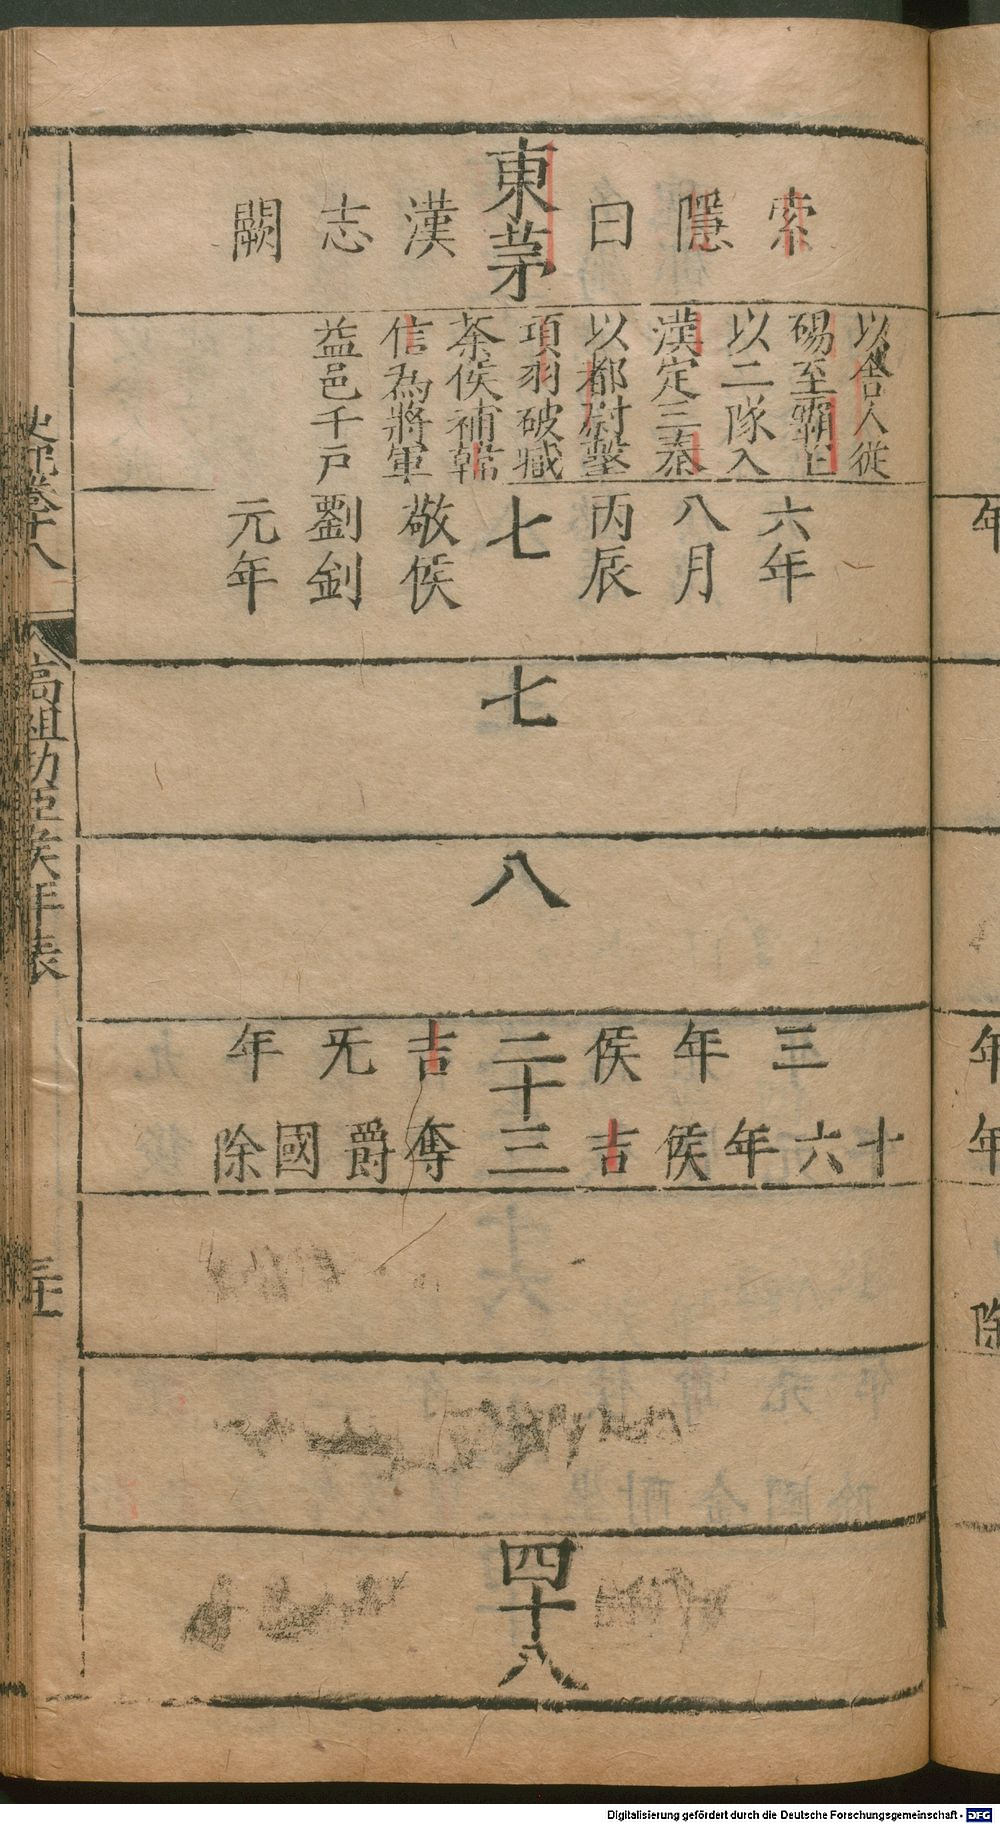 索隱曰
東茅
漢志闕
以舍人從
碭至霸上
以二隊入
漢定三秦
以都尉擊
項羽破臧
荼侯補韓
信為將軍
益邑千戶
六年
八月
丙辰
七
敬侯
劉釗
元年
七
八
三年侯吉旡年
二十三
十六年侯吉奪爵國除
四十八
史記卷十八
高祖功臣侯年表
年
年
年
除
Digitalisierung gefördert durch die Deutsche Forschungsgemeinschaft - DFG